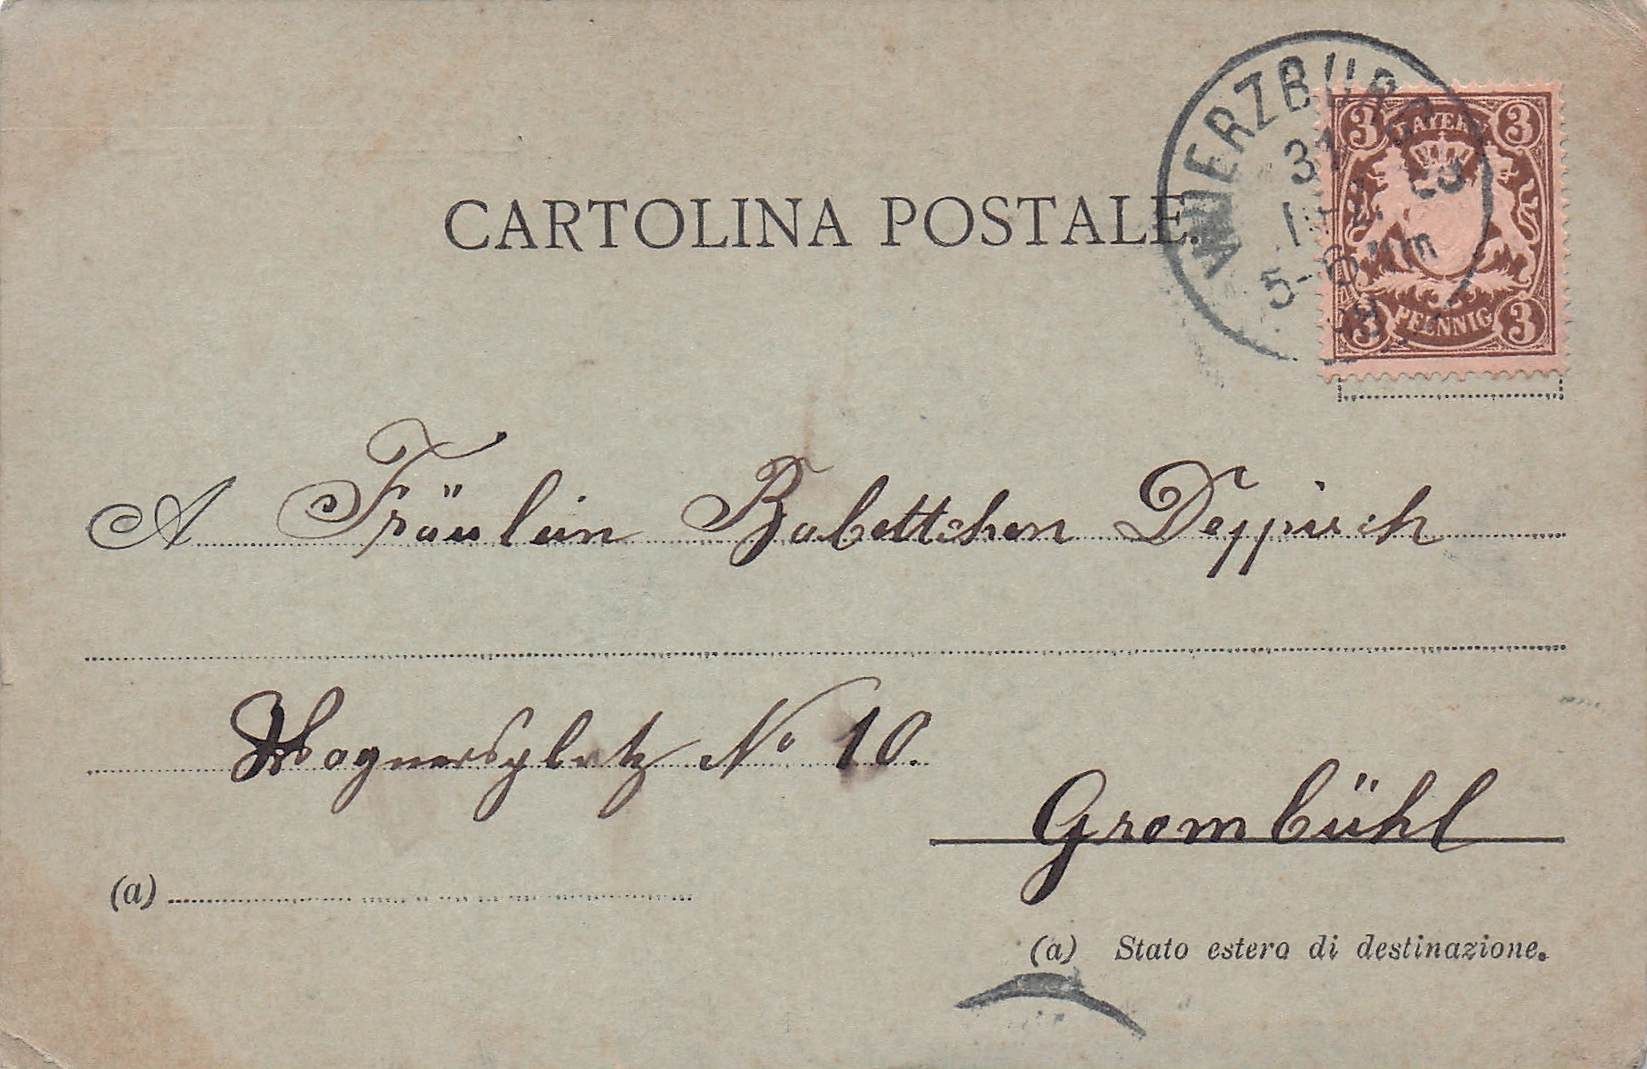 CARTOLINA POSTALE.
WUERZBURG
31
5-6 Nm
3 BAYERN 3
3 PFENNIG 3
A Fräulein Babettchen Deppisch
Wagnersplatz No 10.
Grombühl
(a)
(a) Stato estero di destinazione.